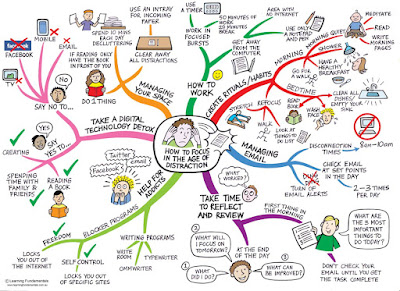 HOW TO FOCUS
IN THE AGE OF
DISTRACTION
MANAGING
YOUR SPACE
USE AN INTRAY
FOR INCOMING
PAPER
SPEND 10 MINS
EACH DAY
DECLUTTERING
CLEAR AWAY
ALL DISTRACTIONS
IF READING ONLY
HAVE THE BOOK
IN FRONT OF YOU
DO 1 THING
HOW TO
WORK
USE
A TIMER
WORK IN
FOCUSED
BURSTS
50 MINUTES OF
WORK
10 MINUTES
BREAK
GET AWAY
FROM THE
COMPUTER
AREA WITH
NO INTERNET
USE ONLY
A NOTEPAD
AND PEN
CREATE RITUALS/HABITS
MORNING
MORNING QUIET
MEDITATE
READ
WRITE
MORNING
PAGES
GO FOR
A WALK
HAVE A
HEALTHY
BREAKFAST
BEDTIME
READ
BOOK
WASH
FACE
CLEAN ALL
DISHES/
EMPTY YOUR
SINK
REFOCUS
STRETCH
WALK
LOOK AT
TO DO LIST
MANAGING
EMAIL
DISCONNECTION
TIMES
8am - 10am
CHECK EMAIL
AT SET POINTS
IN THE DAY
2-3 TIMES
PER DAY
TURN OFF
EMAIL ALERTS
TAKE TIME
TO REFLECT
AND REVIEW
FIRST THING
IN THE MORNING
WHAT ARE THE
3 MOST
IMPORTANT
THINGS TO
DO TODAY?
DON'T CHECK
EMAIL UNTIL
YOU GET THE
TASK COMPLETE
AT THE END
OF THE DAY
WHAT
WORKED?
WHAT WILL
I FOCUS ON
TOMORROW?
WHAT
DID I DO?
WHAT CAN BE
IMPROVED?
HELP FOR
ADDICTS
Twitter
email
Facebook
BLOCKER PROGRAMS
FREEDOM
LOCKS YOU OUT
OF THE INTERNET
SELF CONTROL
LOCKS YOU OUT
OF SPECIFIC SITES
WRITING PROGRAMS
WRITE ROOM
TYPEWRITER
OMMWRITER
TAKE A DIGITAL
TECHNOLOGY DETOX
SAY NO TO...
No
MOBILE
EMAIL
facebook
FACEBOOK
TV
SAY YES TO...
Yes
Yes
CREATING
SPENDING
TIME WITH
FAMILY &
FRIENDS
READING
A BOOK
© Learning Fundamentals